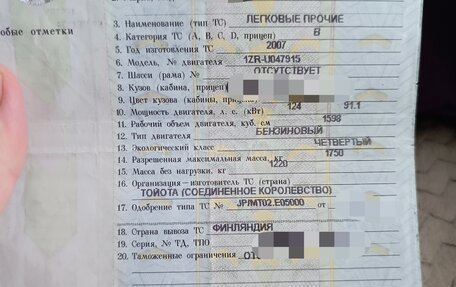 обые отметки
3. Наименование (тип ТС) ЛЕГКОВЫЕ ПРОЧИЕ
4. Категория ТС (А, В, С, D, прицеп) В
5. Год изготовления ТС 2007
6. Модель, № двигателя 1ZR-U047915
7. Шасси (рама) № ОТСУТСТВУЕТ
8. Кузов (кабина, прицеп)
9. Цвет кузова (кабины,
10. Мощность двигателя, л. с. (кВт) 124 91.1
11. Рабочий объем двигателя, куб. см 1598
12. Тип двигателя БЕНЗИНОВЫЙ
13. Экологический класс ЧЕТВЕРТЫЙ
14. Разрешенная максимальная масса, кг 1750
15. Масса без нагрузки, кг 1220
16. Организация—изготовитель ТС (страна)
ТОЙОТА (СОЕДИНЕННОЕ КОРОЛЕВСТВО)
17. Одобрение типа ТС № JP/MT02.E05000 от
18. Страна вывоза ТС ФИНЛЯНДИЯ
19. Серия, № ТД, ТПО
20. Таможенные ограничения